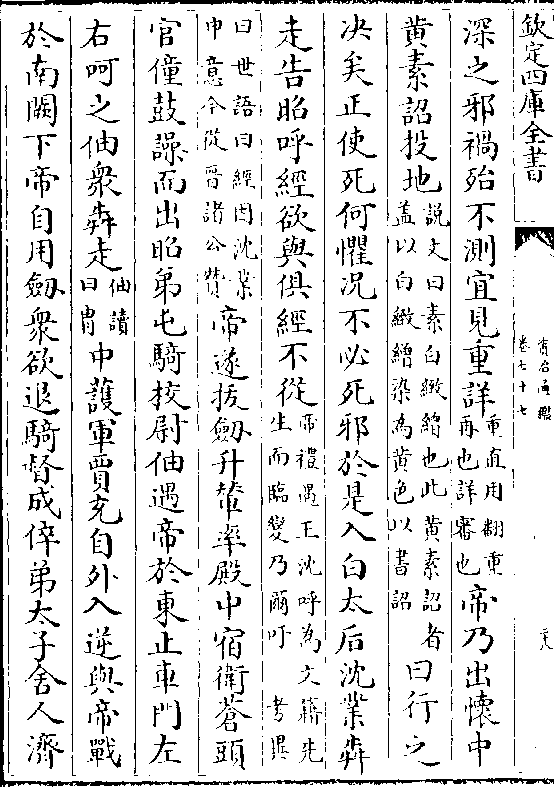 欽定四庫全書
資治通鑑
卷七十七
深之邪禍殆不測宜見重詳重直用翻重再也詳審也帝乃出懷中
黄素詔投地說文曰素白緻繒也此黄素詔者蓋以白緻繒染為黄色以書詔曰行之
决矣正使死何懼况不必死邪於是入白太后沈業犇
走告昭呼經欲與俱經不從帝禮遇王沈呼為文籍先生而臨變乃爾吁考異
曰世語曰經因沈業申意今從晉諸公贊帝遂拔劒升輦率殿中宿衛蒼頭
官僮鼓譟而出昭弟屯騎校尉伷遇帝於東止車門左
右呵之伷衆犇走伷讀曰胄中䕶軍賈充自外入逆與帝戰
於南闕下帝自用劒衆欲退騎督成倅弟太子舍人濟